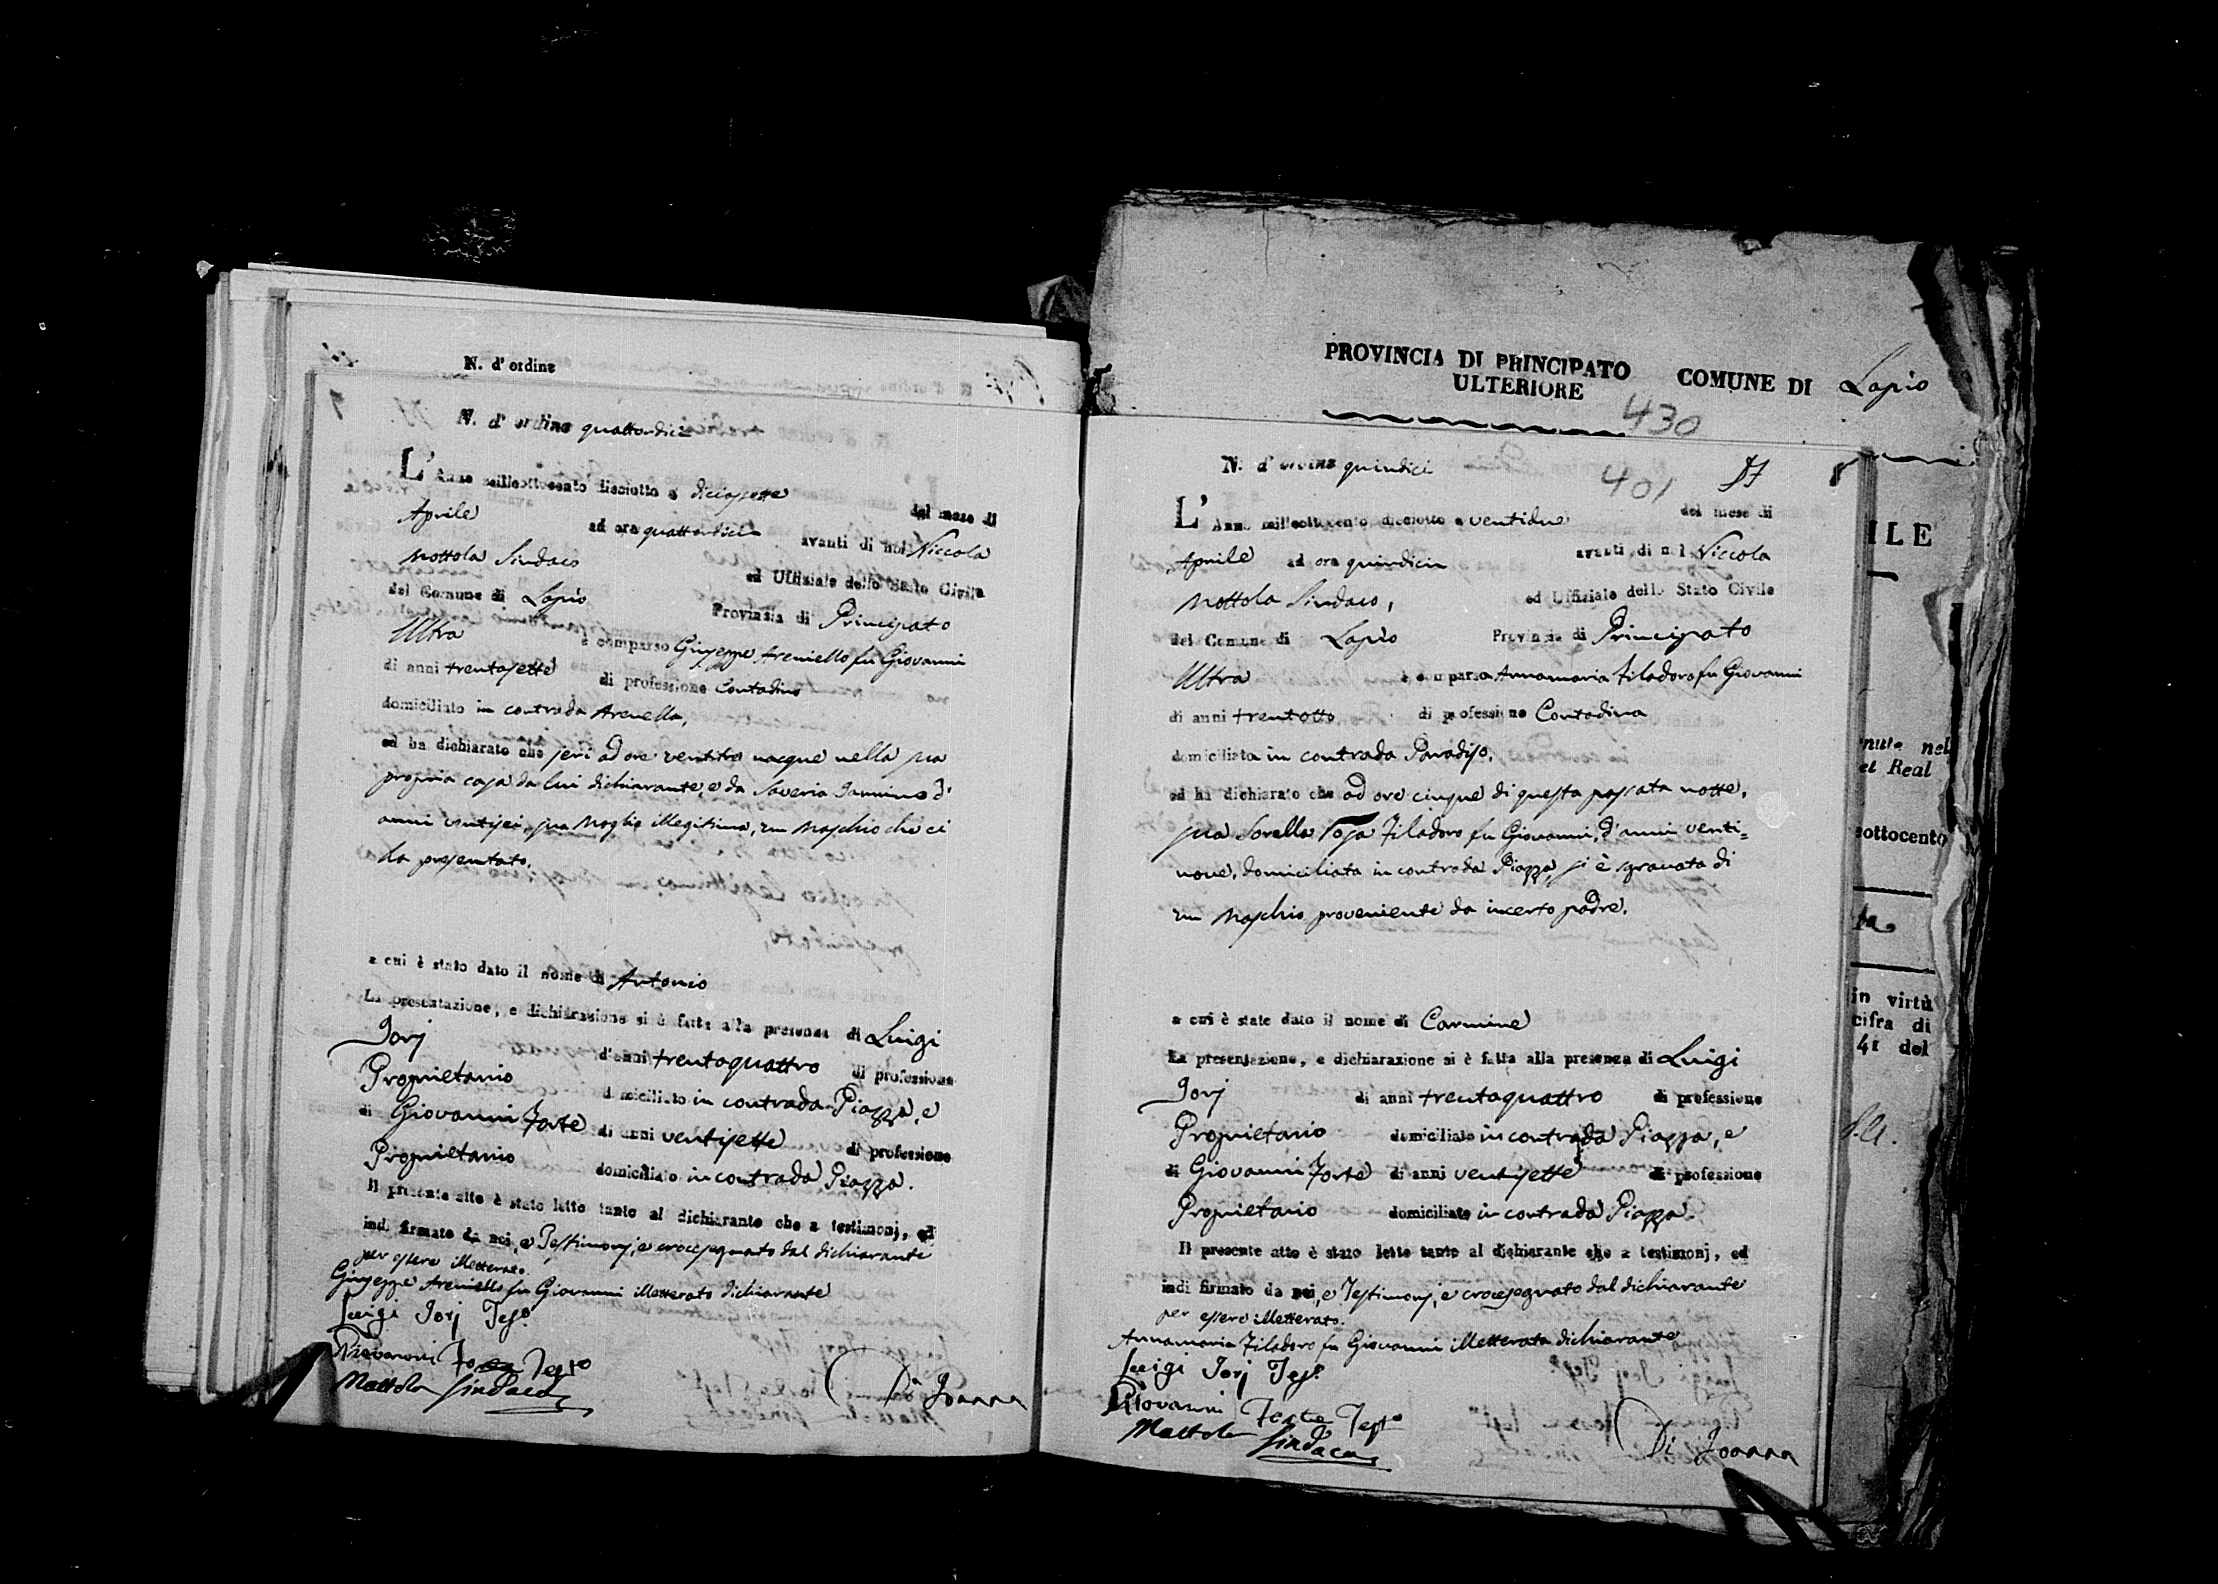 N. d' ordine
N. d' ordine quattordici
L' Anno milleottocento dieciotto a diciasette del mese di
Aprile ad ore quattordici avanti di noi Niccola
Mottola Sindaco ed Uffiziale dello Stato Civile
del Comune di Lapio Provincia di Principato
Ultra è comparso Giuseppe Areniello fu Giovanni
di anni trentasette di professione Contadino
domiciliato in contrada Arenella,
ed ha dichiarato che jeri ad ore ventitrè nacque nella sua
propria casa da lui dichiarante, e da Saveria d'
anni ventisei, sua Moglie illegitima, un Maschio che ci
ha presentato.
a cui è stato dato il nome di Antonio
La presentazione, e dichiarazione si è fatta alla presenza di Luigi
Iorj d'anni trentaquattro di professione
Proprietario domiciliato in contrada Piazza, e
di Giovanni Forte di anni ventisette di professione
Proprietario domiciliato in contrada Piazza.
Il presente atto è stato letto tanto al dichiarante che a testimonj, ed
indi firmato da noi, e Testimonj, e crocesegnato dal dichiarante
per essere illetterato.
Giuseppe Areniello fu Giovanni illetterato dichiarante
Luigi Iorj Teso
Giovanni Forte Testo
Mottola Sindaco
Di Joanna
PROVINCIA DI PRINCIPATO
ULTERIORE
COMUNE DI Lapio
430
N. d' ordine quindici
401
8
L' Anno milleottocento dieciotto a ventidue del mese di
Aprile ad ore quindici avanti di noi Niccola
Mottola Sindaco, ed Uffiziale dello Stato Civile
del Comune di Lapio Provincia di Principato
Ultra è comparsa Annamaria Filadoro fu Giovanni
di anni trentotto di professione Contadina
domiciliata in contrada Paradiso,
ed ha dichiarato che ad ore cinque di questa passata notte,
sua Sorella Rosa Filadoro fu Giovanni, d'anni venti=
nove, domiciliata in contrada Piazza, si è sgravata di
un Maschio proveniente da incerto padre.
a cui è stato dato il nome di Carmine
La presentazione, e dichiarazione si è fatta alla presenza di Luigi
Iorj di anni trentaquattro di professione
Proprietario domiciliato in contrada Piazza, e
di Giovanni Forte di anni ventisette di professione
Proprietario domiciliato in contrada Piazza.
Il presente atto è stato letto tanto al dichiarante che a testimonj, ed
indi firmato da noi, e Testimonj, e crocesegnato dal dichiarante
per essere illetterato.
Annamaria Filadoro fu Giovanni illetterata dichiarante
Luigi Iorj Teso
Giovanni Forte Testo
Mottola Sindaco
Di Joanna
ILE
nute nel
el Real
sottocento
in virtù
cifra di
41 del